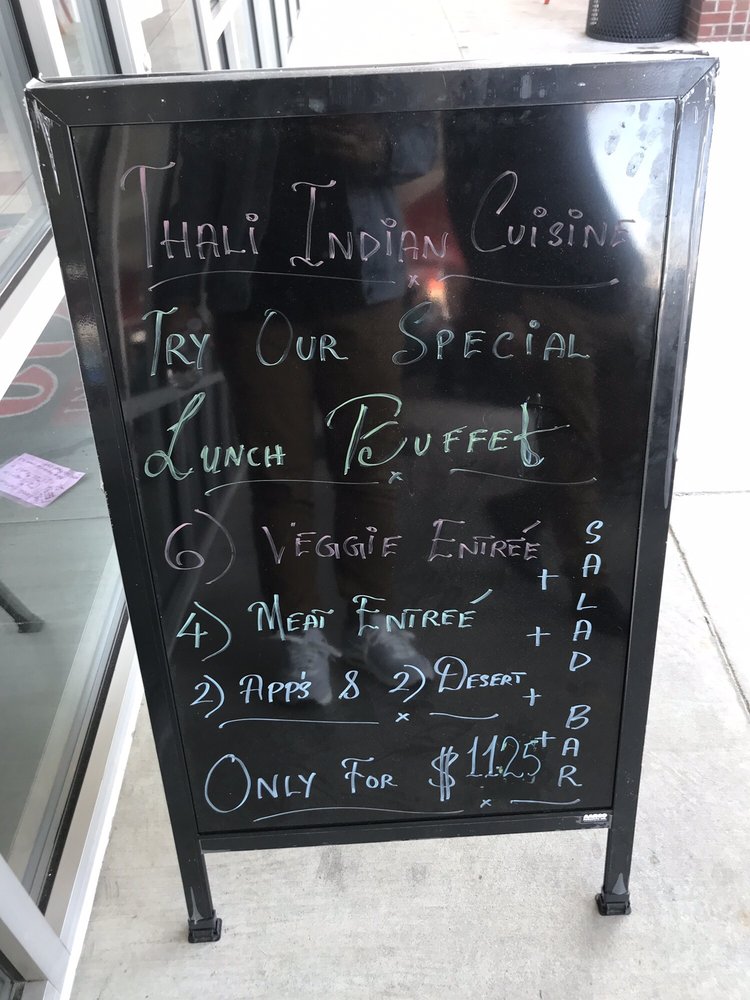 THALI INDIAN CUISINE
TRY OUR SPECIAL
LUNCH BUFFET
6) VEGGIE ENTRÉE
+
4) MEAT ENTREÉ
+
2) APP'S & 2) DESERT
+
ONLY FOR $11.25
+
SALAD BAR